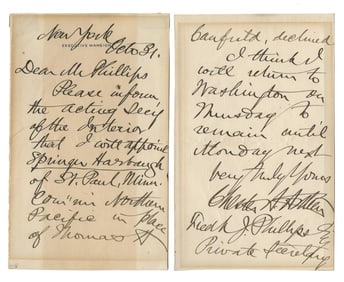 New York
EXECUTIVE MANSION
Octo 31.
Dear Mr Phillips
Please inform
the acting Sec'y
of the Interior
that I will appoint
Springer Harbaugh
of St. Paul, Minn.
Com'r Northern
Pacific in place
of Thomas H
Canfield, declined
I think I
will return to
Washington on
Thursday to
remain until
Monday next
Very truly yours
Chester A Arthur
Fredk J. Phillips Esq
Private Secretary